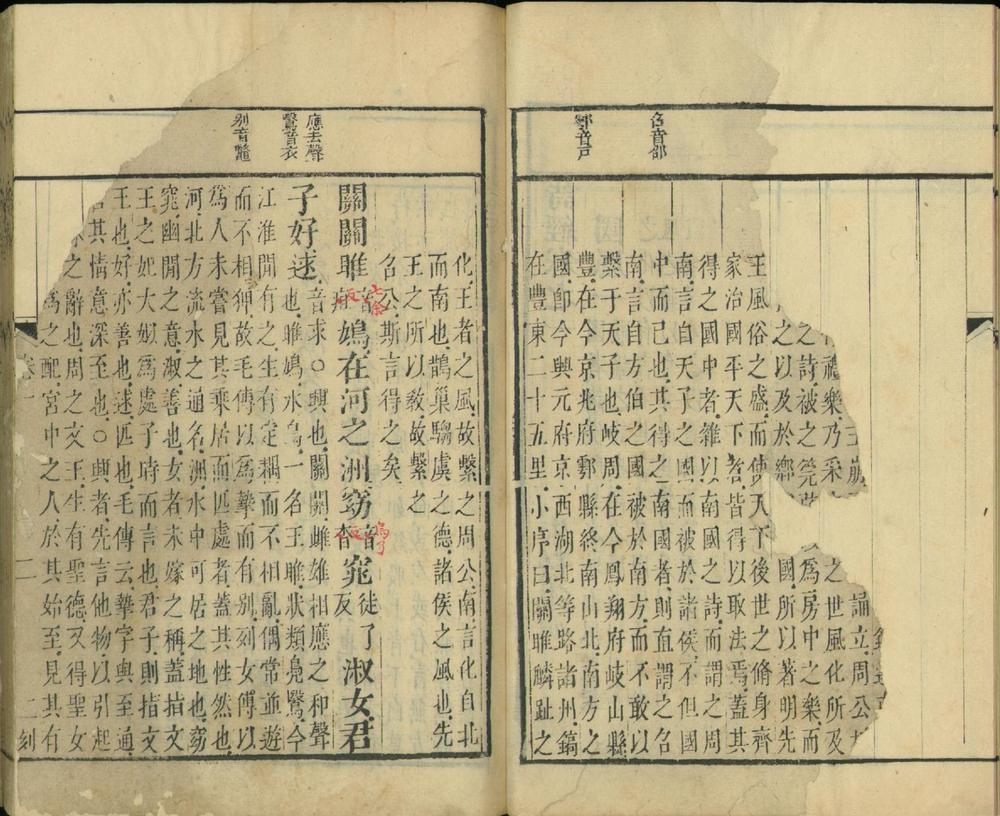 召音邵
鄠音戶
誦立周公
之世風化所及
禮樂乃采
之詩被之筦
爲房中之樂而
之以及於鄉
國所以著明先
王風俗之盛而使天下後世之脩身齊
家治國平天下者皆得以取法焉蓋其
得之國中者雜以南國之詩而謂之周
南言自天子之國而被於諸侯不但國
中而已也其得之南國者則直謂之召
南言自方伯之國被於南方而不敢以
繫于天子也岐周在今鳳翔府岐山縣
豐在今京兆府鄠縣終南山北南方之
國卽今興元府京西湖北等路諸州鎬
在豐東二十五里小序曰關雎麟趾之
應去聲
鷖音衣
别音鼈
化王者之風故繫之周公南言化自北
而南也鵲巢騶虞之德諸侯之風也先
王之所以敎故繫之
召公斯言得之矣
關關雎鳩在河之洲窈窕徒了反淑女君
子好逑音求○興也關關雌雄相應之和聲
也雎鳩水鳥一名王雎狀類鳧鷖今
江淮閒有之生有定耦而不相亂偶常並遊
而不相狎故毛傳以爲摯而有别列女傳以
爲人未嘗見其乘居而匹處者蓋其性然也
河北方流水之通名洲水中可居之地也窈
窕幽閒之意淑善也女者未嫁之稱蓋指文
王之妃大姒爲處子時而言也君子則指文
王也好亦善也逑匹也毛傳云摯字與至通
言其情意深至也○興者先言他物以引起
之辭也周之文王生有聖德又得聖女
爲之配宮中之人於其始至見其有
卷一
二
二刻